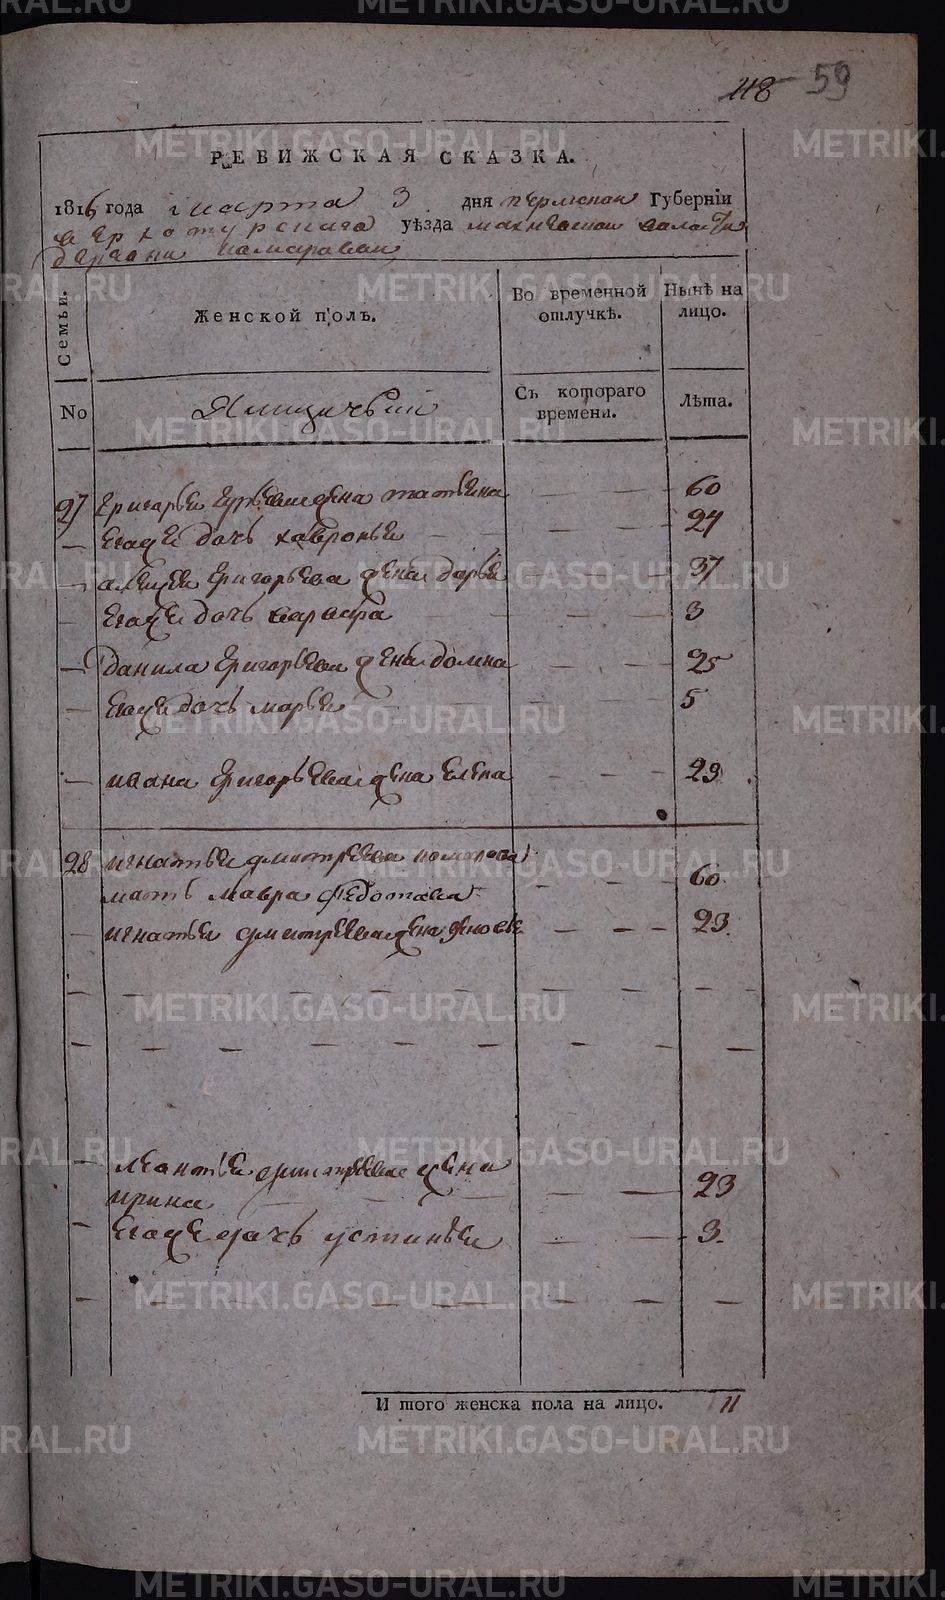 118 59
РЕВИЖСКАЯ СКАЗКА.
1816 года марта 3 дня пермской Губернїи
верхотурскаго уѣзда махневской валасти
деревни камаравай
Семьи.
Женской полъ.
Во временной отлучкѣ.
Нынѣ на лицо.
No
Ямщичьей
Съ котораго времени.
Лѣта.
27 григорьи жена татьяна — — — 60
— егоже дочь хавронья — — — 24
— алексея григорьева жена дарья — — — 37
— егоже дочь 3
— данила григорьева жена домна — — — 25
— егоже дочь марья — — — 5
— ивана григорьева жена елена — — — 29
28 игнатья дмитреева комарова
мать мавра федотова — — — 60
— игнатья дмитреева жена — — — 23
— леонтья дмитреева жена
ирина — — 23
— егоже дочь устинья — — 3
И того женска пола на лицо. 11
METRIKI.GASO-URAL.RU